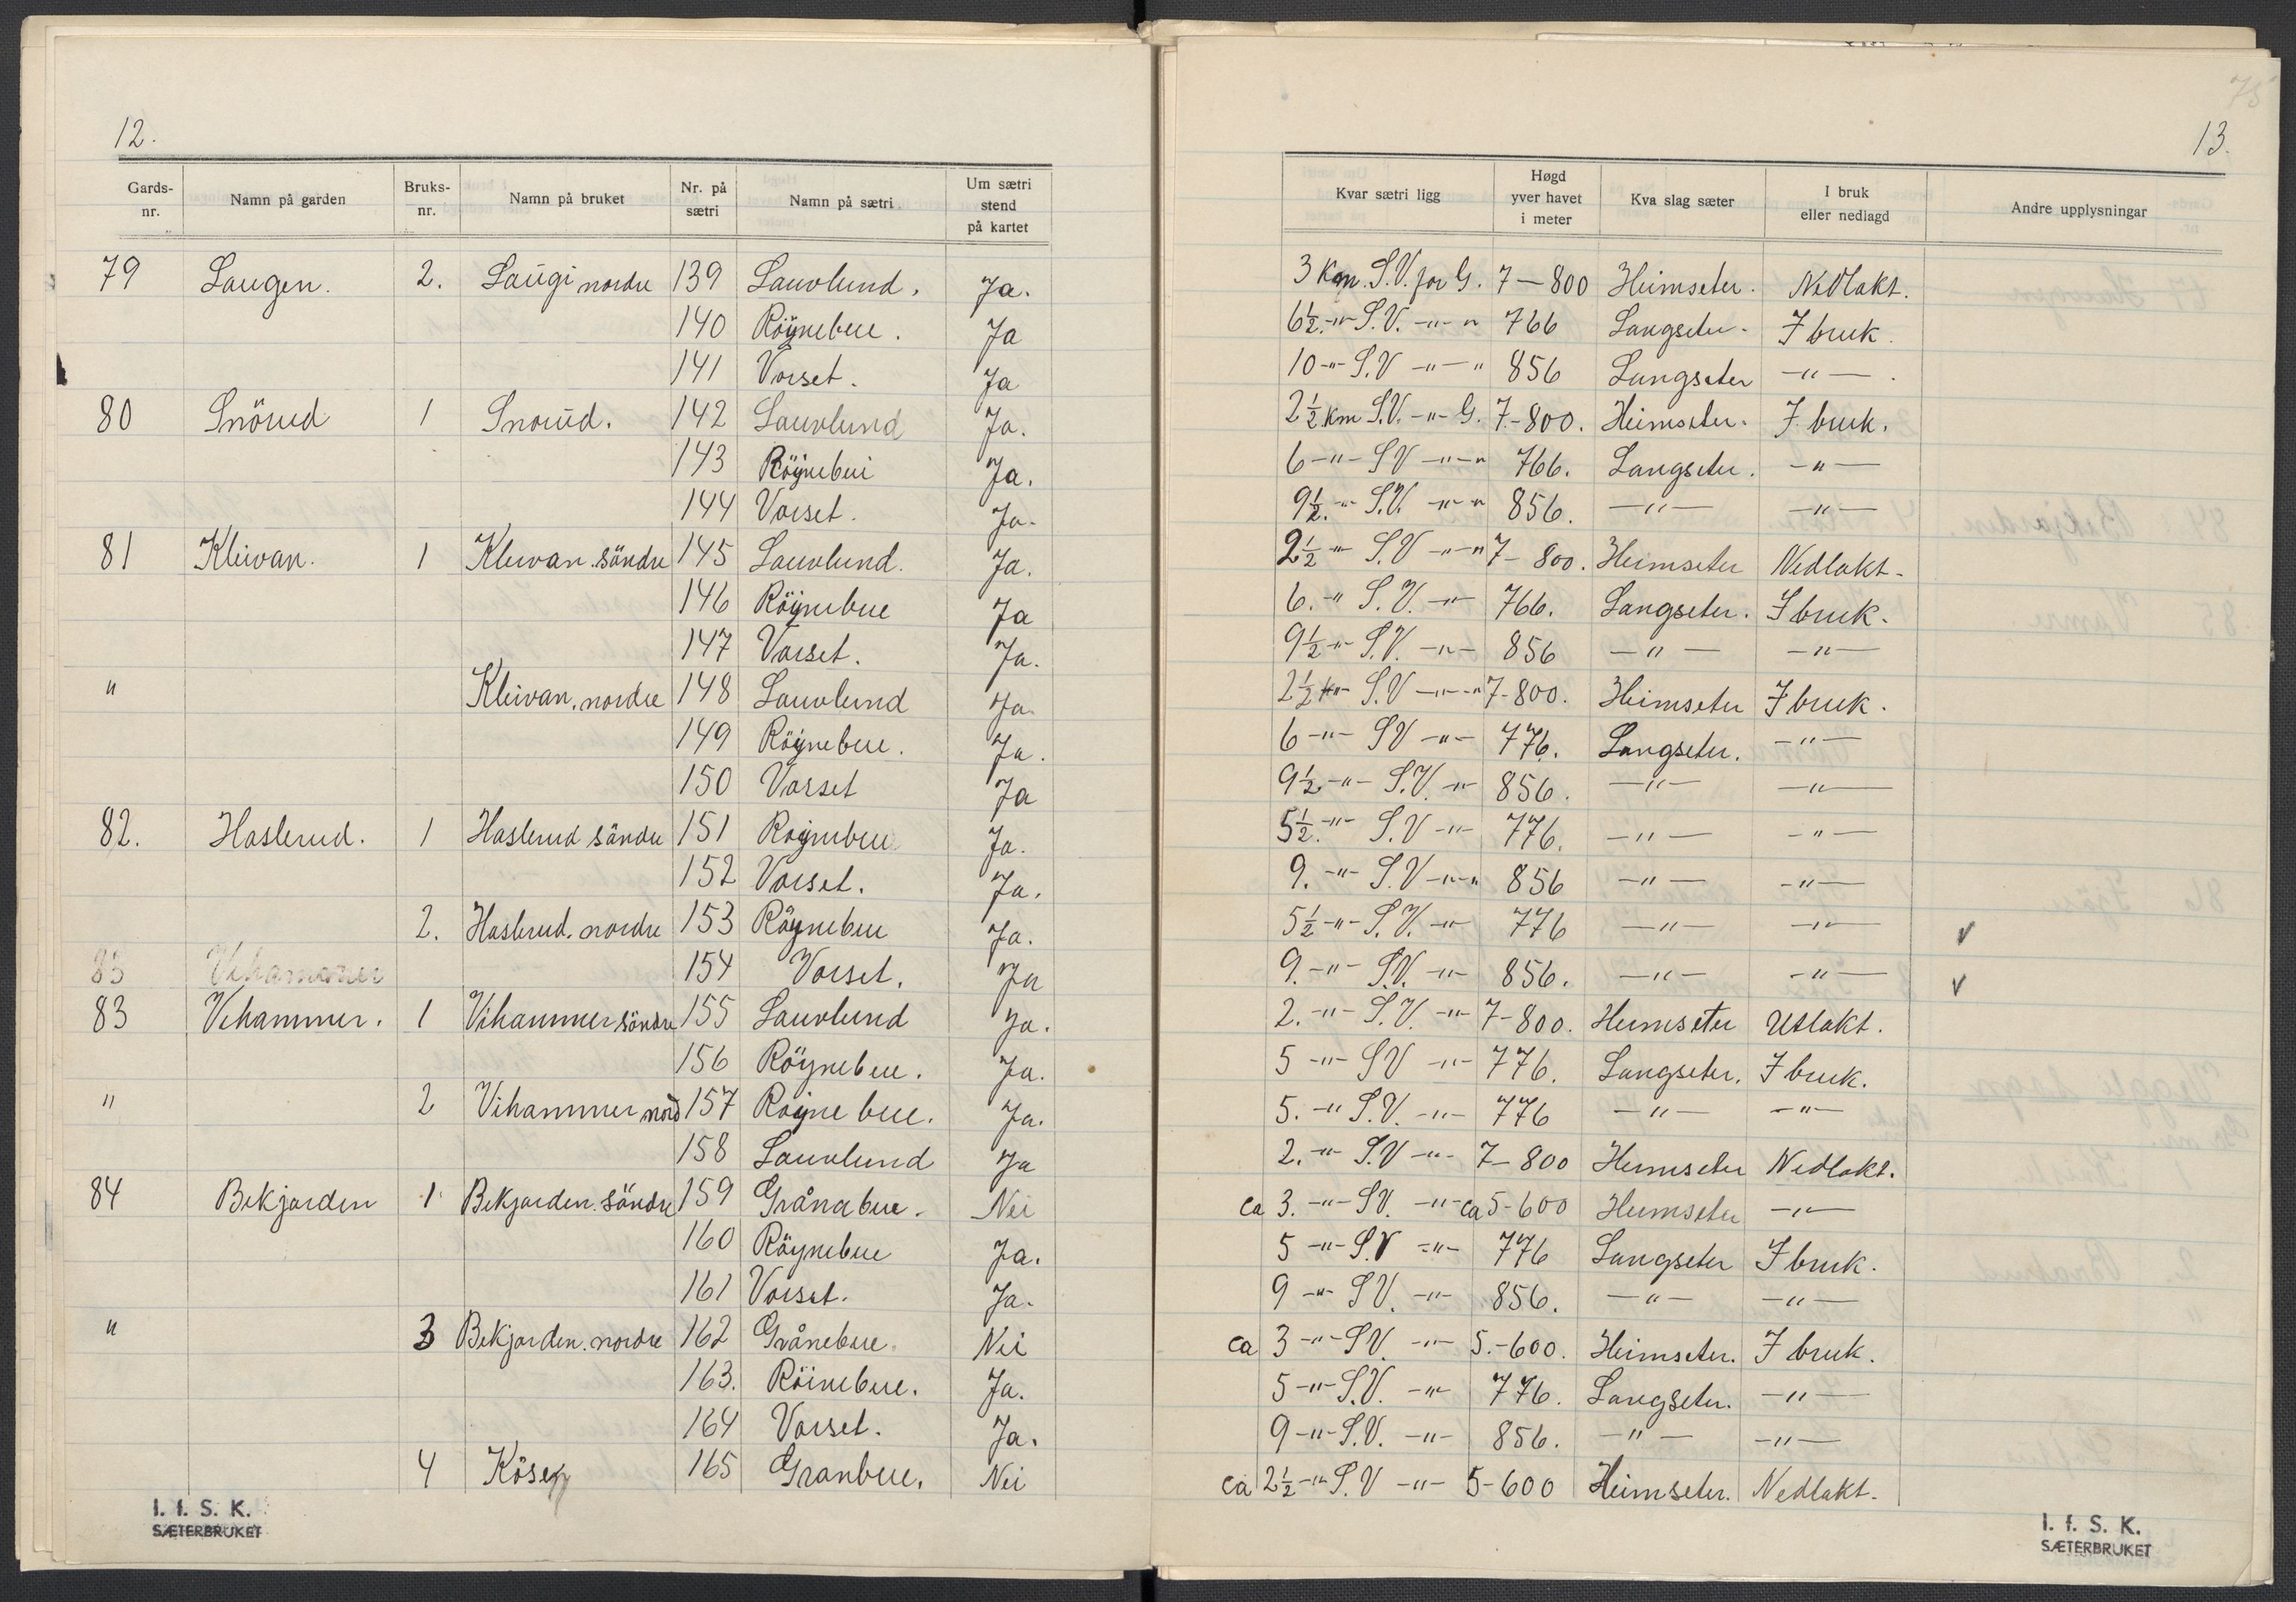 12.
Gards-nr. Namn på garden Bruks-nr. Namn på bruket Nr. på sætri Namn på sætri Um sætri stend på kartet
79 Laugen. 2. Laugi nordre 139 Lauvlund. Ja.
140 Röynebue. Ja
141 Vorset. Ja
80 Snörud 1 Snorud. 142 Lauvlund Ja.
143 Röynebui Ja.
144 Vorset. Ja.
81 Kleivan. 1 Kleivan söndre 145 Lauvlund. Ja.
146 Röynebue Ja
147 Vorset. Ja.
" Kleivan, nordre 148 Lauvlund Ja.
149 Röynebue. Ja.
150 Vorset Ja
82. Haslerud. 1 Haslerud söndre 151 Röynebue Ja.
152 Vorset. Ja.
2. Haslerud, nordre 153 Röynebue Ja.
83 Vihammer 154 Vorset. Ja
83 Vihammer. 1 Vihammer söndre 155 Lauvlund Ja.
156 Röynebue. Ja.
" 2 Vihammer nord 157 Röynebue. Ja.
158 Lauvlund Ja
84 Bekjorden 1 Bekjorden söndre 159 Grånabue. Nei
160 Röynebue Ja.
161 Vorset. Ja.
" 3 Bekjorden. nordre 162 Grånebue Nei
163. Röinebue. Ja.
164 Vorset. Ja.
4 Kösen 165 Granbue. Nei
I. f. S. K.
SÆTERBRUKET
75
13.
Kvar sætri ligg Høgd yver havet i meter Kva slag sæter I bruk eller nedlagd Andre upplysningar
3 km. S.V. for G. 7-800 Heimseter. Nedlakt.
6½ -"- S.V. -"- " 766 Langseter. I bruk.
10 -"- S.V -"- " 856 Langseter -"- .
2½ km S.V. -"- G. 7-800. Heimseter. I bruk.
6 -"- S V -"- " 766. Langseter. -"-
9½ -"- S.V. -"- " 856. -"- -"-
2½ -"- S.V -"- " 7-800. Heimseter Nedlakt.
6. -"- S.V. -"- 766. Langseter. I bruk.
9½ -"- S.V. -"- 856 -"- -"-
2½ km S.V -"- " 7-800. Heimseter I bruk.
6 -"- S V -"- 776. Langseter. -"-
9½ -"- S.V. -"- 856. -"- -"-
5½ -"- S.V -"- 776. -"- -"-
9. -"- S.V -"- " 856 -"- -"-
5½ -"- S.V. -"- 776 -"- -"- v
9. -"- S.V. -"- 856. -"- -"- v
2. -"- S.V. -"- 7-800. Heimseter Utlakt.
5 -"- S V -"- 776. Langseter. I bruk.
5. -"- S.V. -"- 776 -"- -"-
2. -"- S.V -"- 7-800 Heimseter Nedlakt.
ca 3. -"- S V. -"- ca 5-600 Heimseter -"-
5 -"- S.V -"- 776 Langseter I bruk.
9 -"- S V. -"- 856. -"- -"-
ca 3 -"- S V. -"- 5.-600. Heimseter. I bruk.
5 -"- S.V. -"- 776. Langseter. -"-
9 -"- S.V. -"- 856. -"- -"-
ca 2½ -"- S.V -"- 5-600 Heimseter. Nedlakt.
I. f. S. K.
SÆTERBRUKET